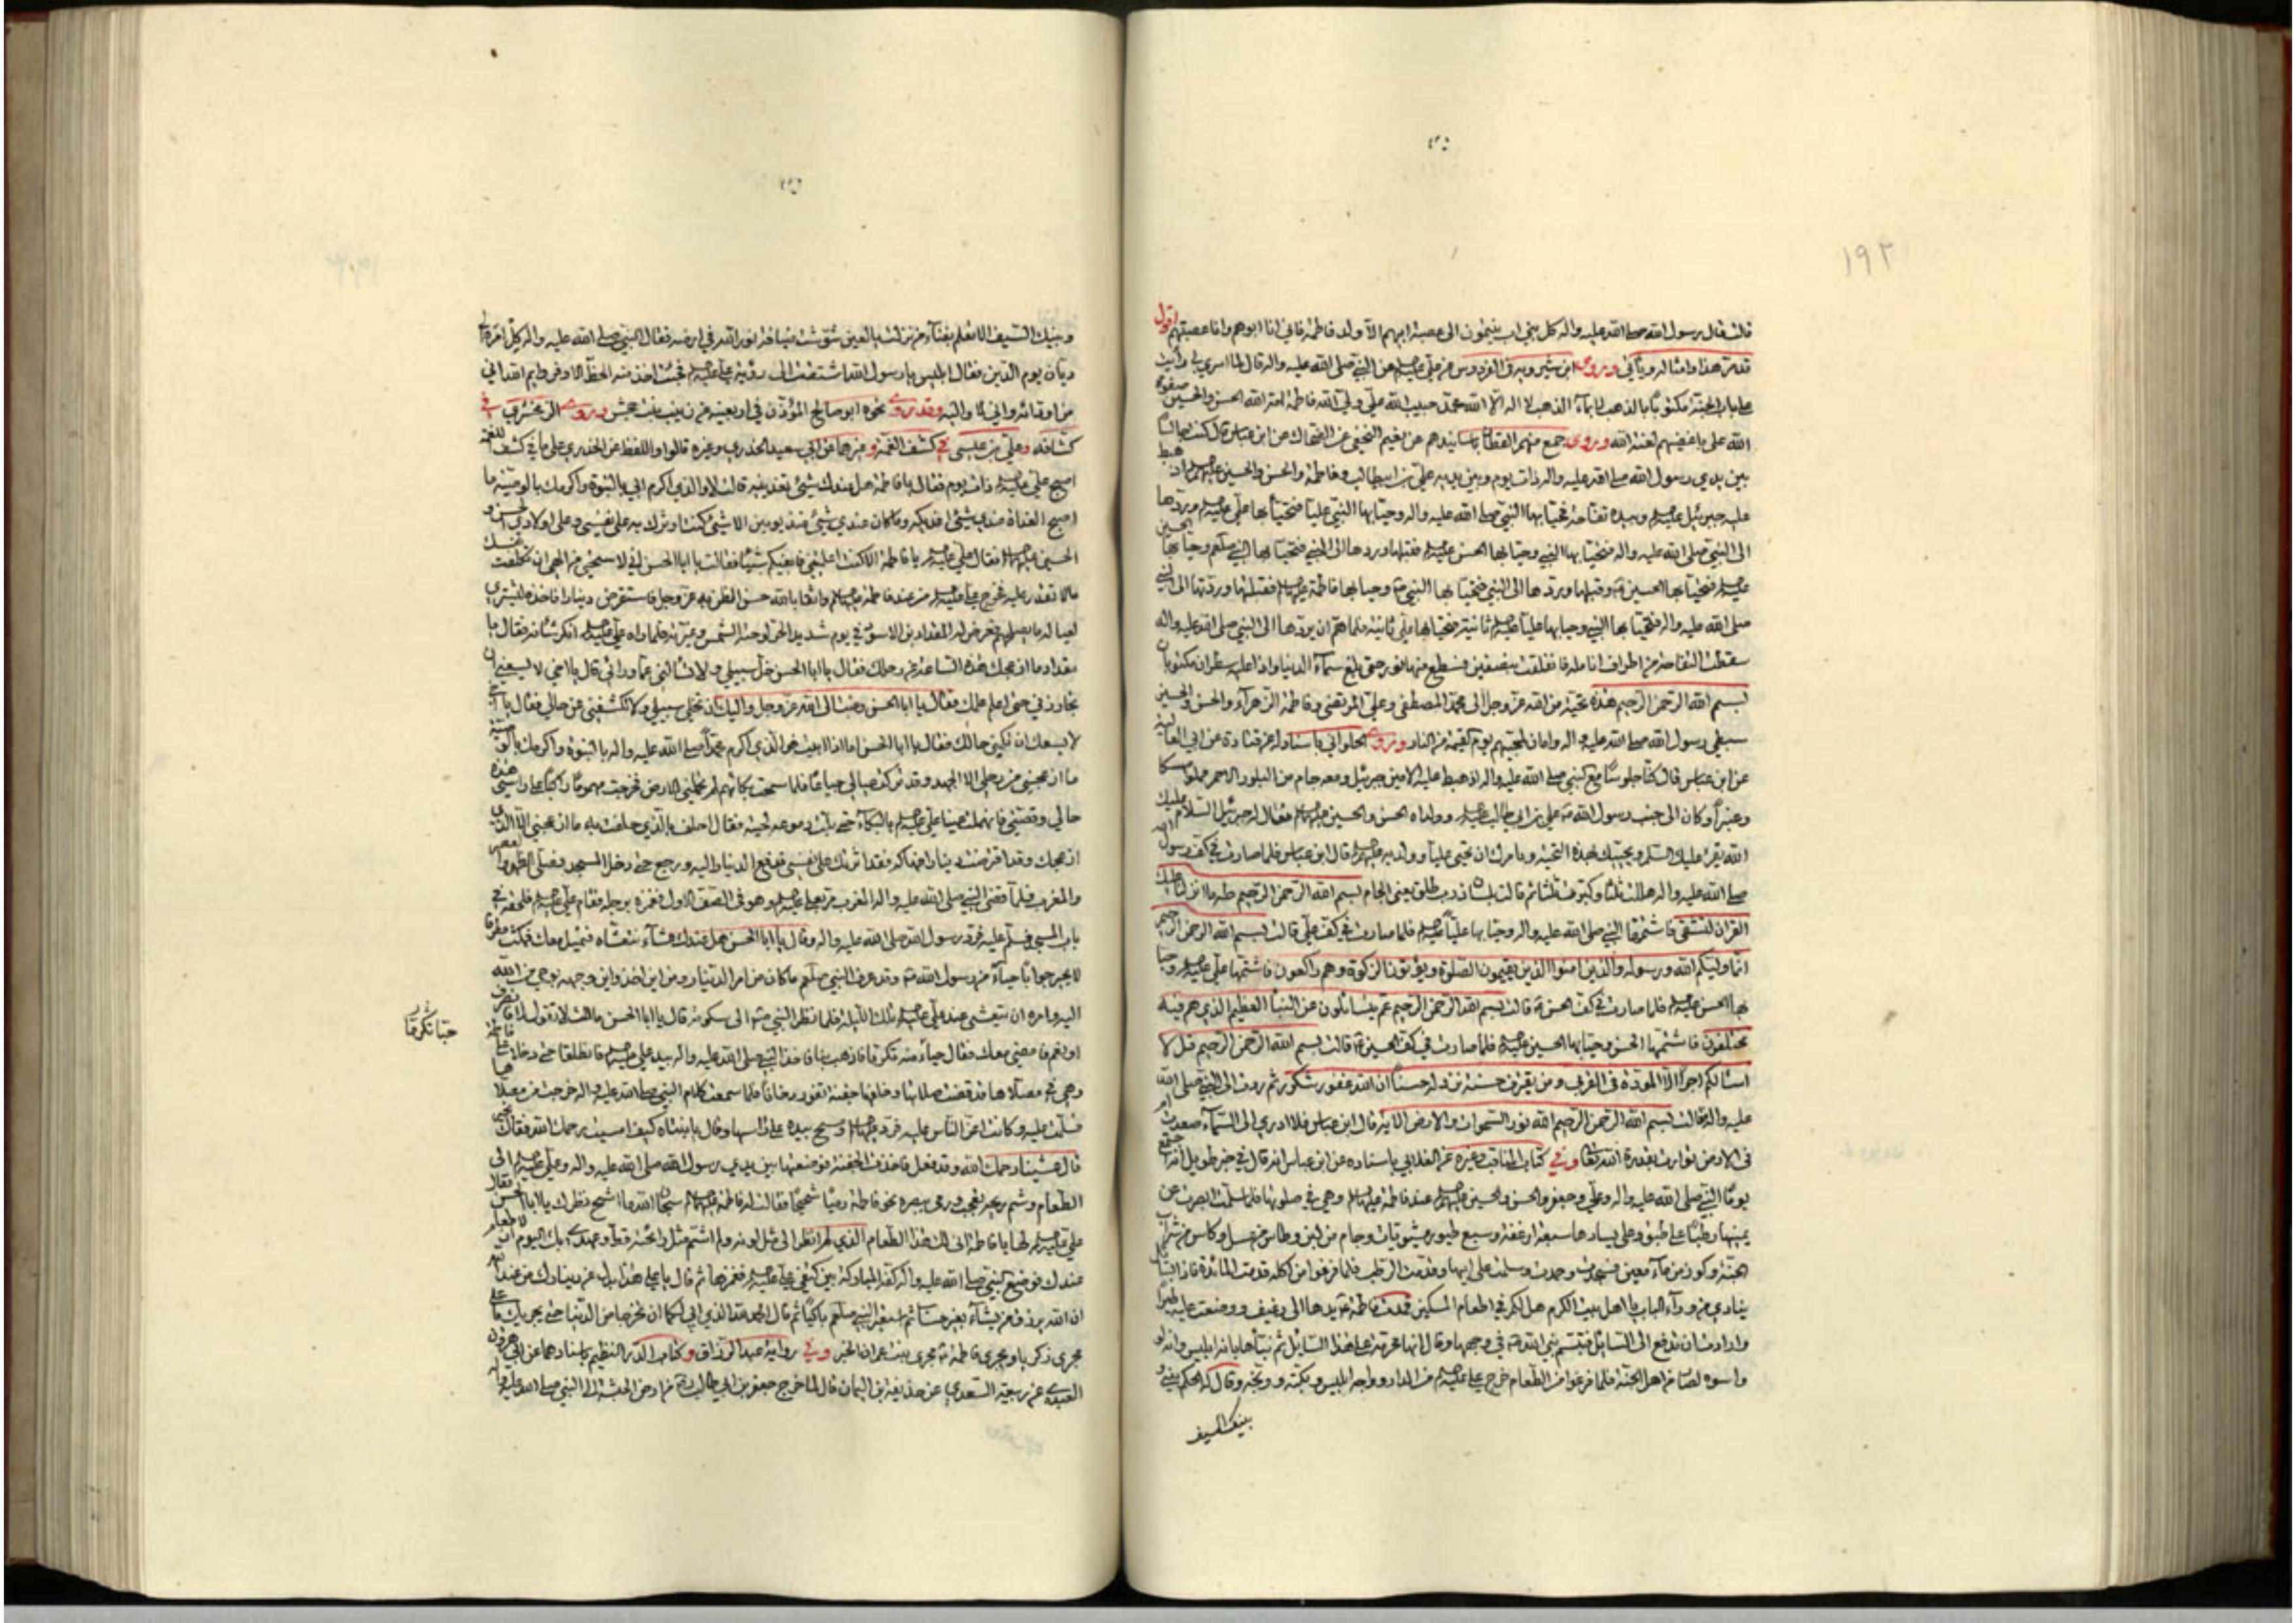 ١٩٢
قالت قال رسول الله صلى الله عليه واله كل بني اب ينتمون الى عصبة ابيهم الا ولد فاطمة فاني انا ابوهم وانا عصبتهم اقول
قد مر هذا وامثاله ويأتي وروى ابن شيرويه في الفردوس عن علي عليه السلم عن النبي صلى الله عليه واله قال لما اسري بي رأيت
على باب الجنة مكتوبا بالذهب لا بماء الذهب لا اله الا الله محمد حبيب الله علي ولي الله فاطمة امة الله الحسن والحسين صفوة
الله على باغضيهم لعنة الله وروى جمع منهم القطان باسانيدهم عن نعيم النخعي عن الضحاك عن ابن عباس قال كنت جالسا
بين يدي رسول الله صلى الله عليه واله ذات يوم وبين يديه علي بن ابيطالب وفاطمة والحسن والحسين عليهم السلم اذ هبط
عليه جبرئيل عليه السلم وبيده تفاحة فحيا بها النبي صلى الله عليه واله وحيا بها النبي عليا فتحيا بها علي عليه السلم وردها
الى النبي صلى الله عليه واله فتحيا بها النبي وحيا بها الحسن عليه السلم فقبلها وردها الى النبي فتحيا بها النبي صلعم وحيا بها الحسين
عليه السلم فتحيا بها الحسين وقبلها وردها الى النبي فتحيا بها النبي وحيا بها فاطمة عليها السلم فقبلتها وردتها الى النبي
صلى الله عليه واله فتحيا بها النبي وحيا بها عليا عليه السلم ثانية فتحيا بها علي ثانية فلما هم ان يردها الى النبي صلى الله عليه واله
سقطت التفاحة من اطراف انامله فانفلقت بنصفين فسطع منها نور حتى بلغ سماء الدنيا واذا عليه سطران مكتوبان
بسم الله الرحمن الرحيم هذه تحية من الله عز وجل الى محمد المصطفى وعلي المرتضى وفاطمة الزهراء والحسن والحسين
سبطي رسول الله صلى الله عليه واله وامان لمحبيهم يوم القيمة من النار وروى الحلواني باسناده عن قتادة عن ابي العالية
عن ابن عباس قال كنا جلوسا مع النبي صلى الله عليه واله اذ هبط عليه الامين جبرئيل ومعه جام من البلور الاحمر مملوا مسكا
وعنبرا وكان الى جنب رسول الله علي بن ابي طالب عليه السلم وولداه الحسن والحسين عليهما السلم فقال له جبرئيل السلام عليك
الله يقرء عليك السلم ويحييك بهذه التحية ويامرك ان تحيي عليا وولديه عليهم السلم قال ابن عباس فلما صارت في كف رسول الله
صلى الله عليه واله هللت ثلثا وكبرت ثلثا ثم قالت بلسان ذرب طلق يعني الجام بسم الله الرحمن الرحيم طه ما انزلنا عليك
القران لتشقى فاشتمها النبي صلى الله عليه واله وحيا بها عليا عليه السلم فلما صارت في كف علي قالت بسم الله الرحمن الرحيم
انما وليكم الله ورسوله والذين امنوا الذين يقيمون الصلوة ويؤتون الزكوة وهم راكعون فاشتمها علي عليه السلم وحيا
بها الحسن عليه السلم فلما صارت في كف الحسن قالت بسم الله الرحمن الرحيم عم يتسائلون عن النبأ العظيم الذي هم فيه
مختلفون فاشتمها الحسن وحيا بها الحسين عليه السلم فلما صارت في كف الحسين قالت بسم الله الرحمن الرحيم قل لا
اسئلكم اجرا الا المودة في القربى ومن يقترف حسنة نزد له حسنا ان الله غفور شكور ثم ردت الى النبي صلى الله
عليه واله فقالت بسم الله الرحمن الرحيم الله نور السموات والارض الاية قال ابن عباس فلا ادري الى السماء صعدت ام
في الارض توارت بقدرة الله تعالى وفي كتاب المناقب وغيره عن الغلابي باسناده عن ابن عباس انه قال في خبر طويل انه اجتمع
يوما النبي صلى الله عليه واله وعلي وجعفر والحسن والحسين عليهم السلم عند فاطمة عليها السلم وهي في صلوتها فلما سلمت ابصرت عن
يمينها رطبا على طبق وعلى يسارها سبعة ارغفة وسبع طيور مشويات وجام من لبن وطاس من عسل وكاس من شراب
الجنة وكوز من ماء معين فسجدت وحمدت وصلت على ابيها وقدمت الرطب فلما فرغوا من اكله قدمت المائدة فاذا بسائل
ينادي من وراء الباب يا اهل بيت الكرم هل لكم في اطعام المسكين فمدت فاطمة يدها الى رغيف ووضعت عليه طيرا
وارادت ان تدفع الى السائل فتبسم نبي الله في وجهها وقال انها محرمة على هذا السائل ثم نبأها بانه ابليس وانه لو
واسوه لصار من اهل الجنة فلما فرغوا من الطعام خرج علي عليه السلم من الدار وواجه ابليس وبكته ووبخه وقال له الحكم بيني و
بينك السيف
وبينك السيف الا تعلم بفناء من نزلت يا لعين شوشت ضيافة نور الله في ارضه فقال النبي صلى الله عليه واله كل امره الى
ديان يوم الدين فقال ابليس يا رسول الله اشتقت الى رؤية علي عليه السلم فجئت اخذ منه الحظ الاوفر وايم الله اني
من اودائه واني لاواليه وقد روى نحوه ابو صالح المؤذن في اربعينه عن زينب بنت جحش وروى الزمخشري في
كشافه وعلي بن عيسى في كشف الغمة وغيرهما عن ابي سعيد الخدري وغيره قالوا واللفظ عن الخدري على ما في كشف الغمة
اصبح علي عليه السلم ذات يوم فقال يا فاطمة هل عندك شيئ تغدينيه قالت لا والذي اكرم ابي بالنبوة واكرمك بالوصية ما
اصبح الغداة عندي شيئ اغديكه وما كان عندي شيئ منذ يومين الا شيئ كنت اوثرك به على نفسي وعلى اولادي الحسن و
الحسين عليهما السلم فقال علي عليه السلم يا فاطمة الا كنت اعلمتني فابغيكم شيئا فقالت يا ابا الحسن اني لاستحيي من الهي ان تكلف نفسك
مالا تقدر عليه فخرج علي عليه السلم من عند فاطمة عليها السلم واثقا بالله حسن الظن به عز وجل فاستقرض دينارا فاخذه ليشتري
لعياله ما يصلحهم فعرض له المقداد بن الاسود في يوم شديد الحر لوحته الشمس وغيرته فلما راه علي عليه السلم انكر شانه فقال يا
مقداد ما ازعجك هذه الساعة من رحلك فقال يا ابا الحسن خل سبيلي ولا تسألني عما ورائي قال يا اخي لا يسعني ان
تجاوزني حتى اعلم علمك فقال يا ابا الحسن رغبت الى الله عز وجل واليك ان تخلي سبيلي ولا تكشفني عن حالي فقال يا اخي
لا يسعك ان تكتمني حالك فقال يا ابا الحسن اما اذا ابيت فو الذي اكرم محمدا صلى الله عليه واله بالنبوة واكرمك بالوصية
ما ازعجني من رحلي الا الجهد وقد تركت عيالي جياعا فلما سمعت بكائهم لم تحملني الارض فخرجت مهموما راكبا على راسي هذه
حالي وقصتي فانهملت عينا علي عليه السلم بالبكاء حتى بلت دموعه لحيته فقال احلف بالذي حلفت به ما ازعجني الا الذي
ازعجك وقد اقترضت دينارا فهاكه فقد اثرتك على نفسي فدفع الدينار اليه ورجع حتى دخل المسجد فصلى الظهر والعصر
والمغرب فلما قضى النبي صلى الله عليه واله المغرب مر بعلي عليه السلم وهو في الصف الاول فغمزه برجله فقام علي عليه السلم فلحقه في
باب المسجد فسلم عليه فرد رسول الله صلى الله عليه واله وقال يا ابا الحسن هل عندك عشاء نتعشاه فنميل معك فمكث مطرقا
لا يحير جوابا حياء من رسول الله وقد عرف النبي صلعم ما كان من امر الدينار ومن اين اخذ واين وجهه بوحي من الله
اليه وامره ان يتعشى عند علي عليه السلم تلك الليلة فلما نظر النبي الى سكوته قال يا ابا الحسن مالك لا تقول لا فانصرف
او نعم فامضي معك فقال حياء منه تكرما فاذهب بنا فاخذ النبي صلى الله عليه واله بيد علي عليه السلم فانطلقا حتى دخلا على فاطمة
وهي في مصلاها قد قضت صلاتها وخلفها جفنة تفور دخانا فلما سمعت كلام النبي صلى الله عليه واله خرجت من مصلاها
فسلمت عليه وكانت اعز الناس عليه فرد عليها السلم ومسح بيده على راسها وقال يا بنتاه كيف امسيت رحمك الله فقالت بخير
قال عشينا رحمك الله وقد فعل فاخذت الجفنة فوضعتها بين يدي رسول الله صلى الله عليه واله وعلي عليه السلم فلما نظر الى
الطعام وشم ريحه فعجب ورمى ببصره نحو فاطمة رميا شحيحا فقالت له فاطمة عليها السلم سبحان الله ما اشح نظرك يا ابا الحسن فقال
علي عليه السلم لها يا فاطمة انى لك هذا الطعام الذي لم انظر الى مثل لونه ولم اشتم مثل رائحته قط وعهدي بك اليوم ان لا طعام
عندك فوضع النبي صلى الله عليه واله كفه المباركة بين كتفي علي عليه السلم فغمزها ثم قال يا علي هذا بدل عن دينارك من عند الله
ان الله يرزق من يشاء بغير حساب ثم استعبر النبي صلعم باكيا ثم قال الحمد لله الذي ابى لكما ان تخرجا من الدنيا حتى يجريك يا علي
مجرى زكريا ويجري فاطمة مجرى مريم بنت عمران الخبر وفي رواية عبد الرزاق وكتاب الدر النظيم باسنادهما عن ابي هرون
العبدي عن ربيعة السعدي عن حذيفة ابن اليمان قال لما خرج جعفر بن ابي طالب من ارض الحبشة الى النبي صلى الله عليه واله
حبا تكرما